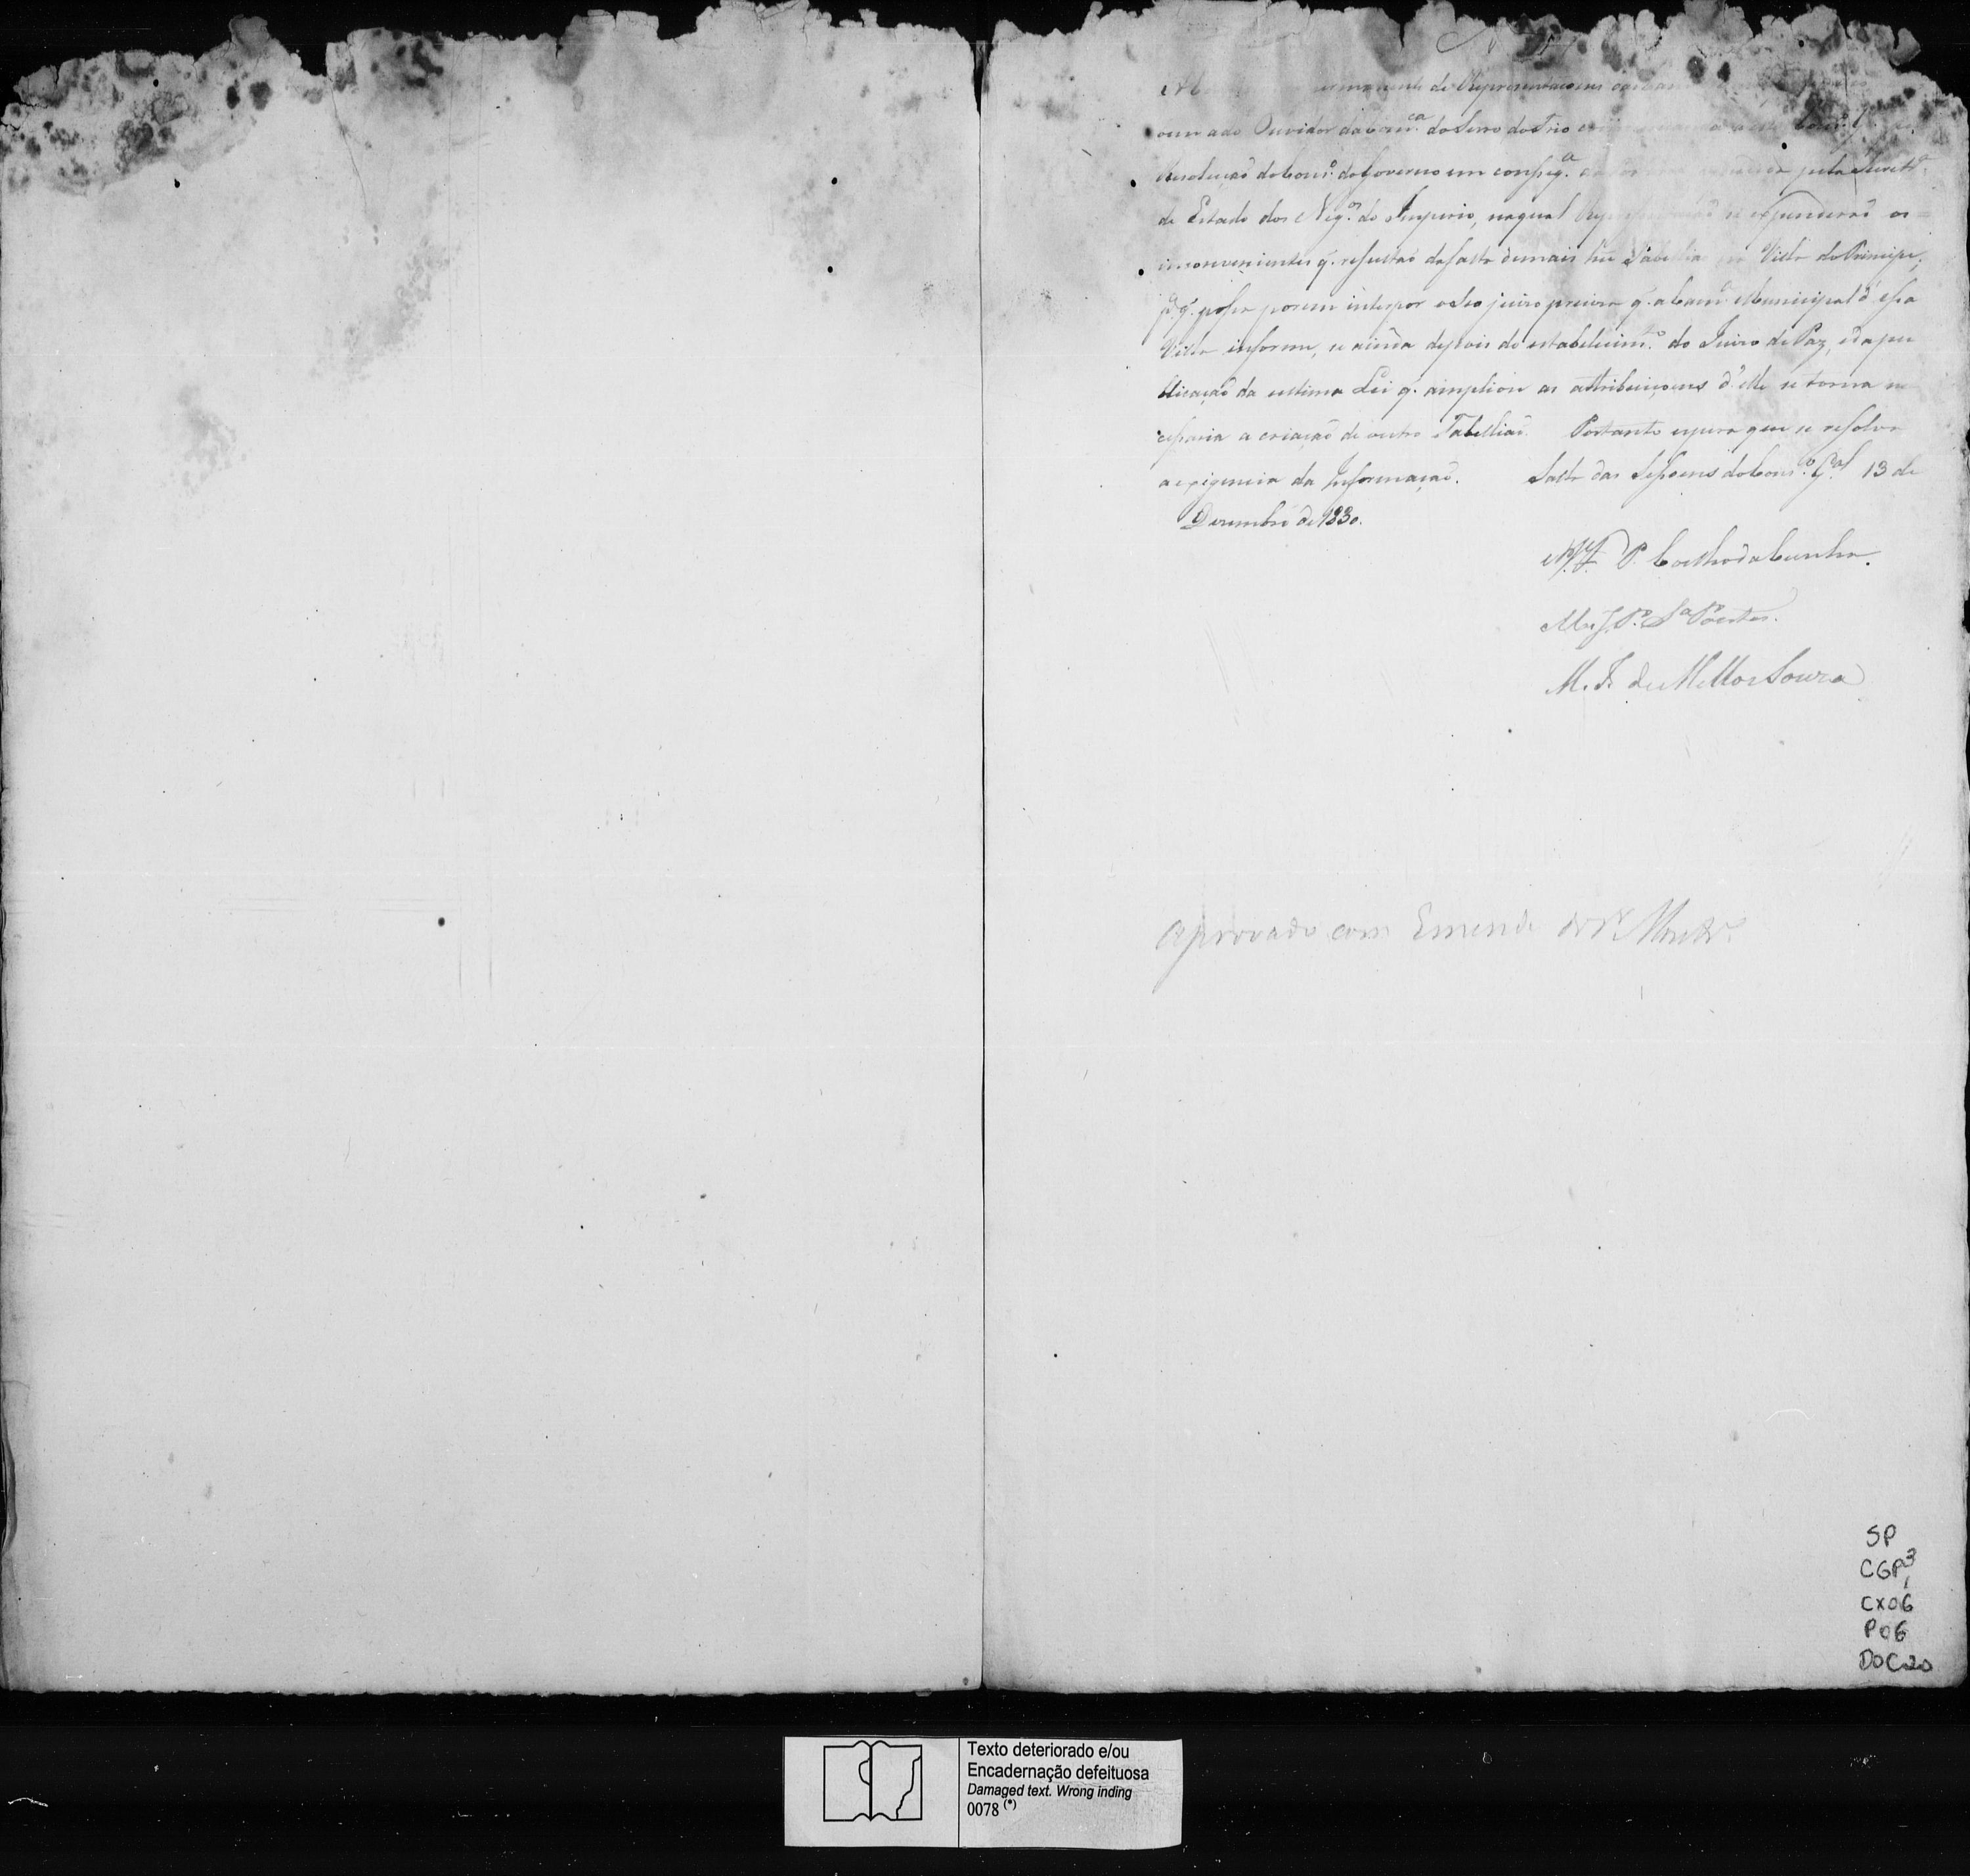 de Representacoens
Ouvidor da Com.ca do Serro do Frio
Resolução do Cons.o do Governo em conseq.a pela Secret.a
de Estado dos Neg.os do Imperio, na qual se expenderaõ os
inconvenientes q. resultaõ da falta de mais hũ Tabelliaõ na Villa do Principe;
p.a q. possa porem interpor o seo juizo precisa q. a Cam.a Municipal d'essa
Villa informe, se ainda depois do estabelecim.o do Juizo de Paz, e da pu
blicaçaõ da ultima Lei q. ampliou as attribuiçoens d'elle se torna ne
cessaria a criaçaõ de outro Tabelliaõ. Portanto espera que se resolva
a exigencia da Informaçaõ. Salla das Sessoens do Cons.o G.al 13 de
Dezembro de 1830.
P. Coelho da Cunha.
M. J. P. S.a Pontes.
M. I. de Mello e Souza
Aprovado com Emenda do Sr.
SP
CGP 3
CX06
P06
DOC20
Texto deteriorado e/ou
Encadernação defeituosa
Damaged text. Wrong inding
0078 (*)